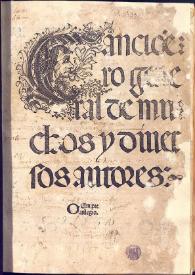 Cancione
ro gene
ral de mu
chos y diuer
sos autores
Con pre
uilegio.